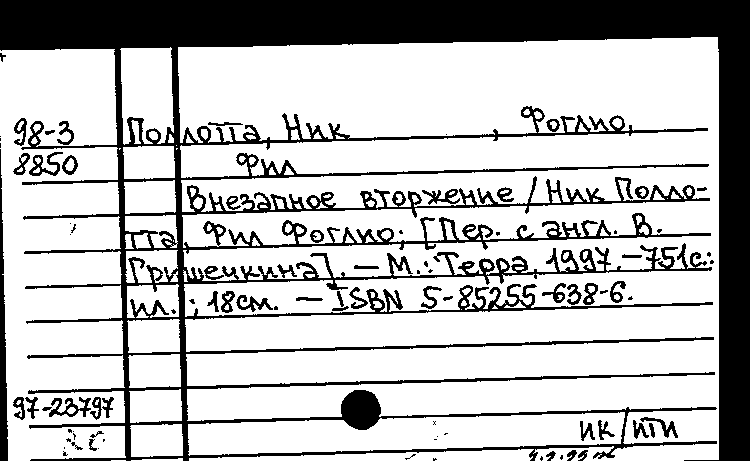 98-3 Поллотта, Ник , Фоглио,
8850 Фил
Внезапное вторжение / Ник Полло-
тта, Фил Фоглио; [Пер. с англ. В.
Гришечкина]. – М.: Терра, 1997. – 751с.:
ил. ; 18см. – ISBN 5-85255-638-6.
97-23797
ИК/ИТИ